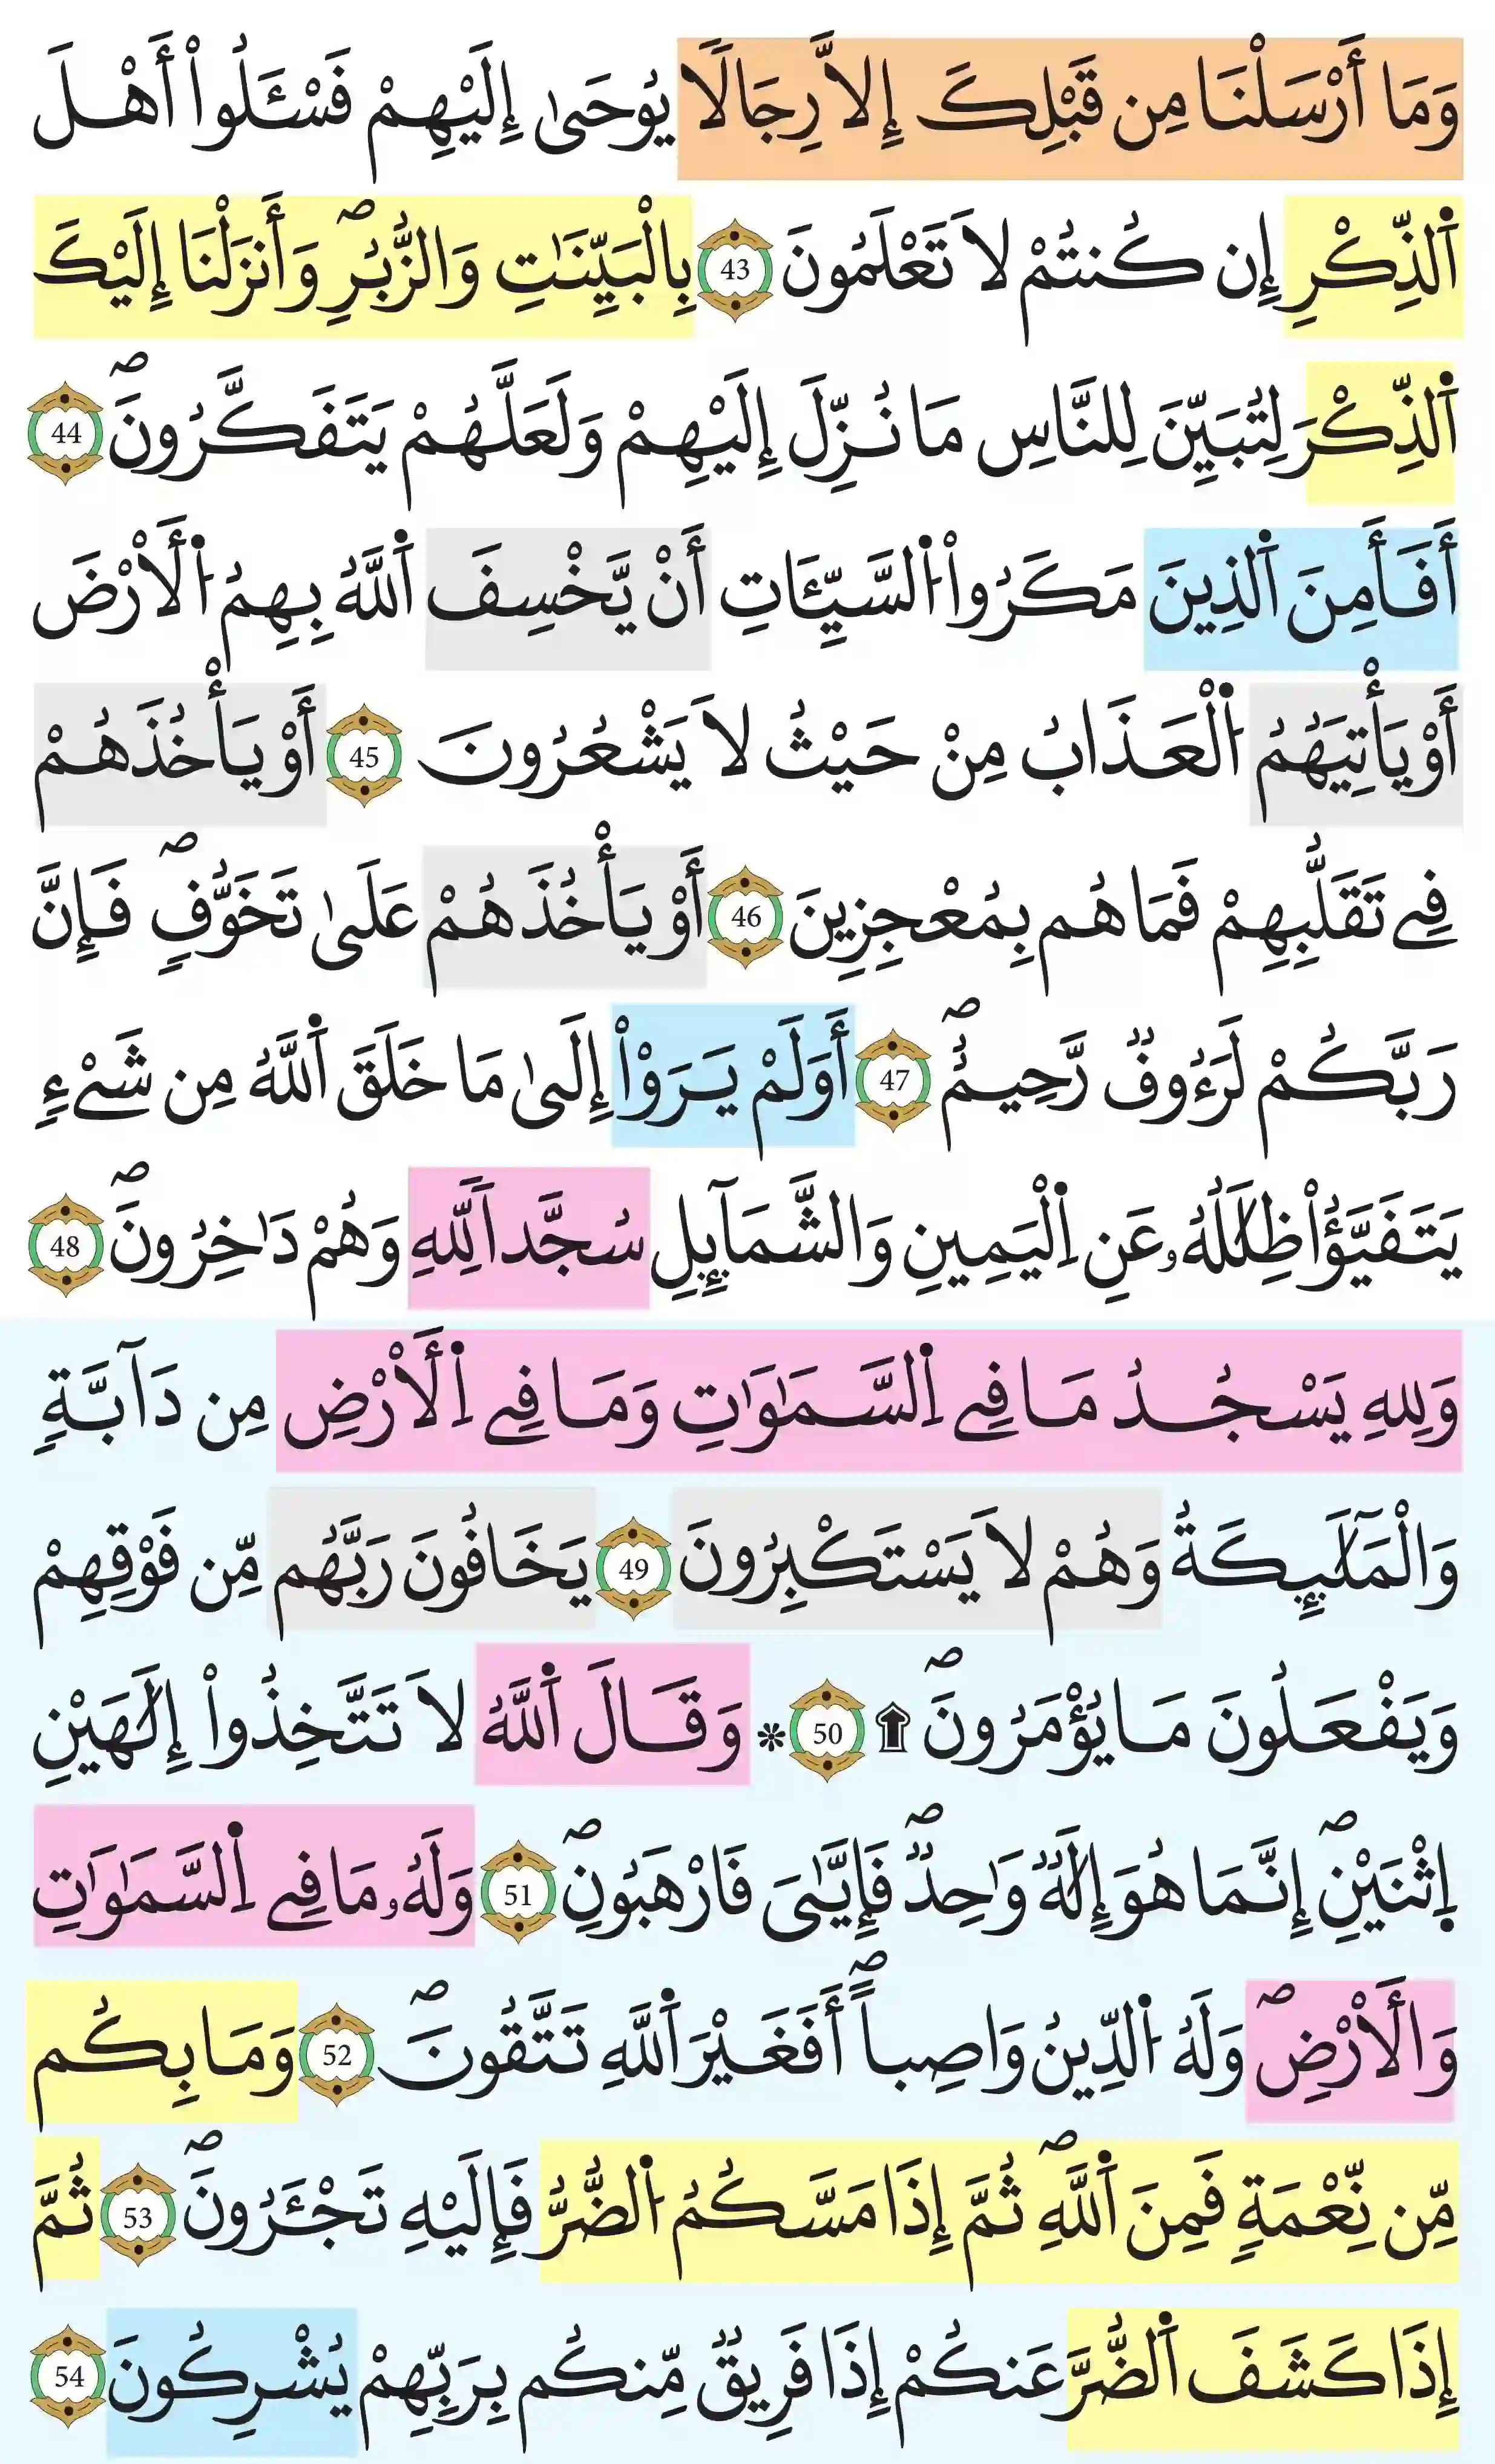 وَمَا أَرْسَلْنَا مِن قَبْلِكَ إِلَّا رِجَالًا يُوحَىٰ إِلَيْهِمْ فَسْـَٔلُواْ أَهْلَ
اَ۬لذِّكْرِ إِن كُنتُمْ لَا تَعْلَمُونَ 43 بِالْبَيِّنَٰتِ وَالزُّبُرِۖ وَأَنزَلْنَا إِلَيْكَ
اَ۬لذِّكْرَ لِتُبَيِّنَ لِلنَّاسِ مَا نُزِّلَ إِلَيْهِمْ وَلَعَلَّهُمْ يَتَفَكَّرُونَۖ 44
أَفَأَمِنَ اَ۬لذِينَ مَكَرُواْ اُ۬لسَّيِّـَٔاتِ أَنْ يَّخْسِفَ اَ۬للَّهُ بِهِمُ اُ۬لْأَرْضَ
أَوْ يَأْتِيَهُمُ اُ۬لْعَذَابُ مِنْ حَيْثُ لَا يَشْعُرُونَ 45 أَوْ يَأْخُذَهُمْ
فِے تَقَلُّبِهِمْ فَمَا هُم بِمُعْجِزِينَ 46 أَوْ يَأْخُذَهُمْ عَلَىٰ تَخَوُّفٍۖ فَإِنَّ
رَبَّكُمْ لَرَءُوفٌ رَّحِيمٌۖ 47 أَوَلَمْ يَرَوْاْ إِلَىٰ مَا خَلَقَ اَ۬للَّهُ مِن شَےْءٍ
يَتَفَيَّؤُاْ ظِلَٰلُهُۥ عَنِ اِ۬لْيَمِينِ وَالشَّمَآئِلِ سُجَّداً لِّلهِ وَهُمْ دَٰخِرُونَۖ 48
وَلِلهِ يَسْجُدُ مَا فِے اِ۬لسَّمَٰوَٰتِ وَمَا فِے اِ۬لْأَرْضِ مِن دَآبَّةٍ
وَالْمَلَٰٓئِكَةُ وَهُمْ لَا يَسْتَكْبِرُونَ 49 يَخَافُونَ رَبَّهُم مِّن فَوْقِهِمْ
وَيَفْعَلُونَ مَا يُؤْمَرُونَۖ ۩ 50 * وَقَالَ اَ۬للَّهُ لَا تَتَّخِذُواْ إِلَٰهَيْنِ
اِ۪ثْنَيْنِۖ إِنَّمَا هُوَ إِلَٰهٌ وَٰحِدٌۖ فَإِيَّٰىَ فَارْهَبُونِۖ 51 وَلَهُۥ مَا فِے اِ۬لسَّمَٰوَٰتِ
وَالْأَرْضِۖ وَلَهُ اُ۬لدِّينُ وَاصِباًۖ أَفَغَيْرَ اَ۬للَّهِ تَتَّقُونَۖ 52 وَمَا بِكُم
مِّن نِّعْمَةٍ فَمِنَ اَ۬للَّهِۖ ثُمَّ إِذَا مَسَّكُمُ اُ۬لضُّرُّ فَإِلَيْهِ تَجْـَٔرُونَۖ 53 ثُمَّ
إِذَا كَشَفَ اَ۬لضُّرَّ عَنكُمْ إِذَا فَرِيقٌ مِّنكُم بِرَبِّهِمْ يُشْرِكُونَ 54